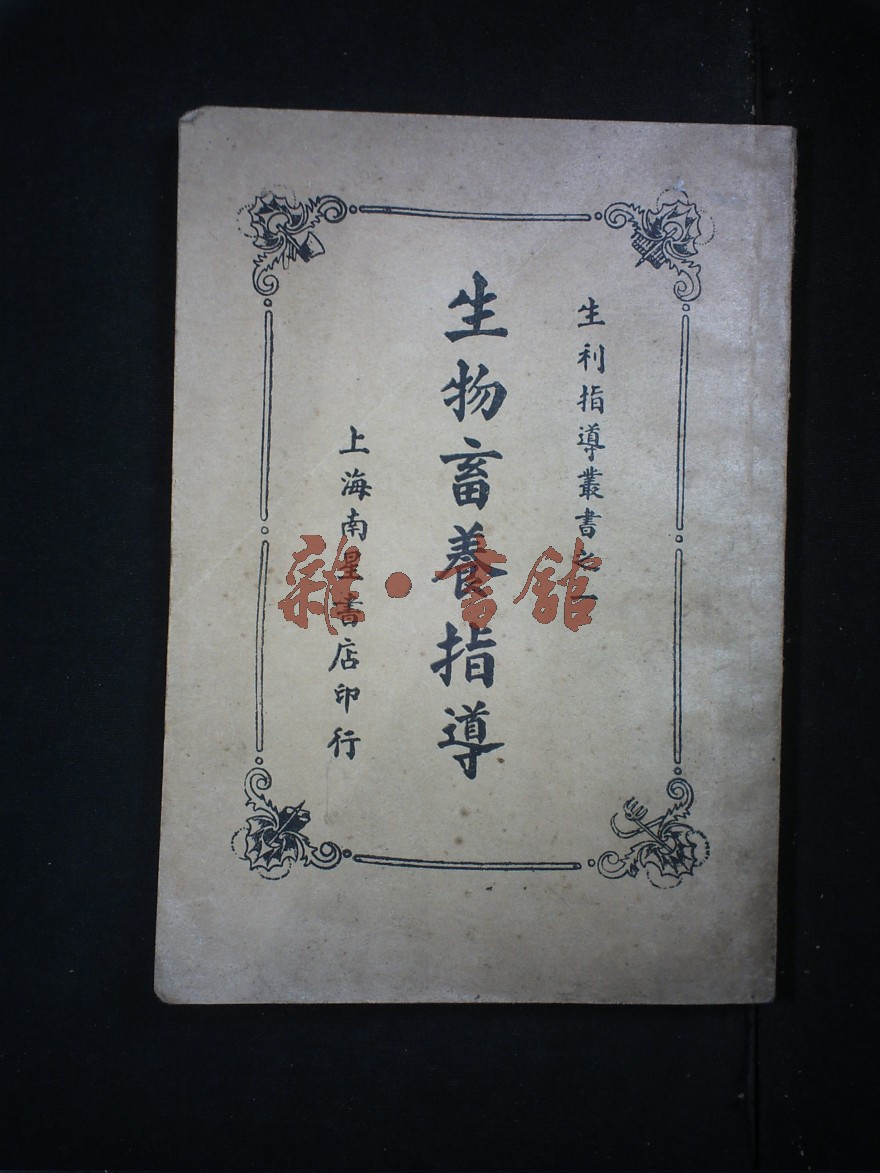 生利指導叢書之一
生物畜養指導
上海南星書店印行
雜·書館